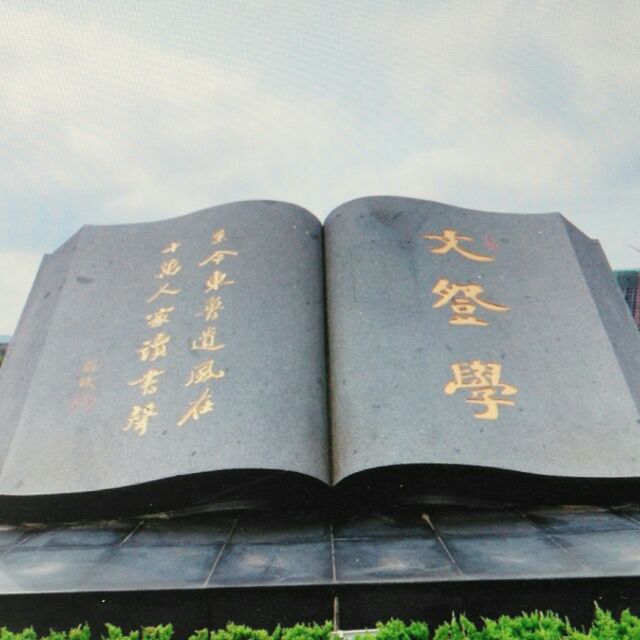 文登學
至今東魯遺風在
十萬人家讀書聲